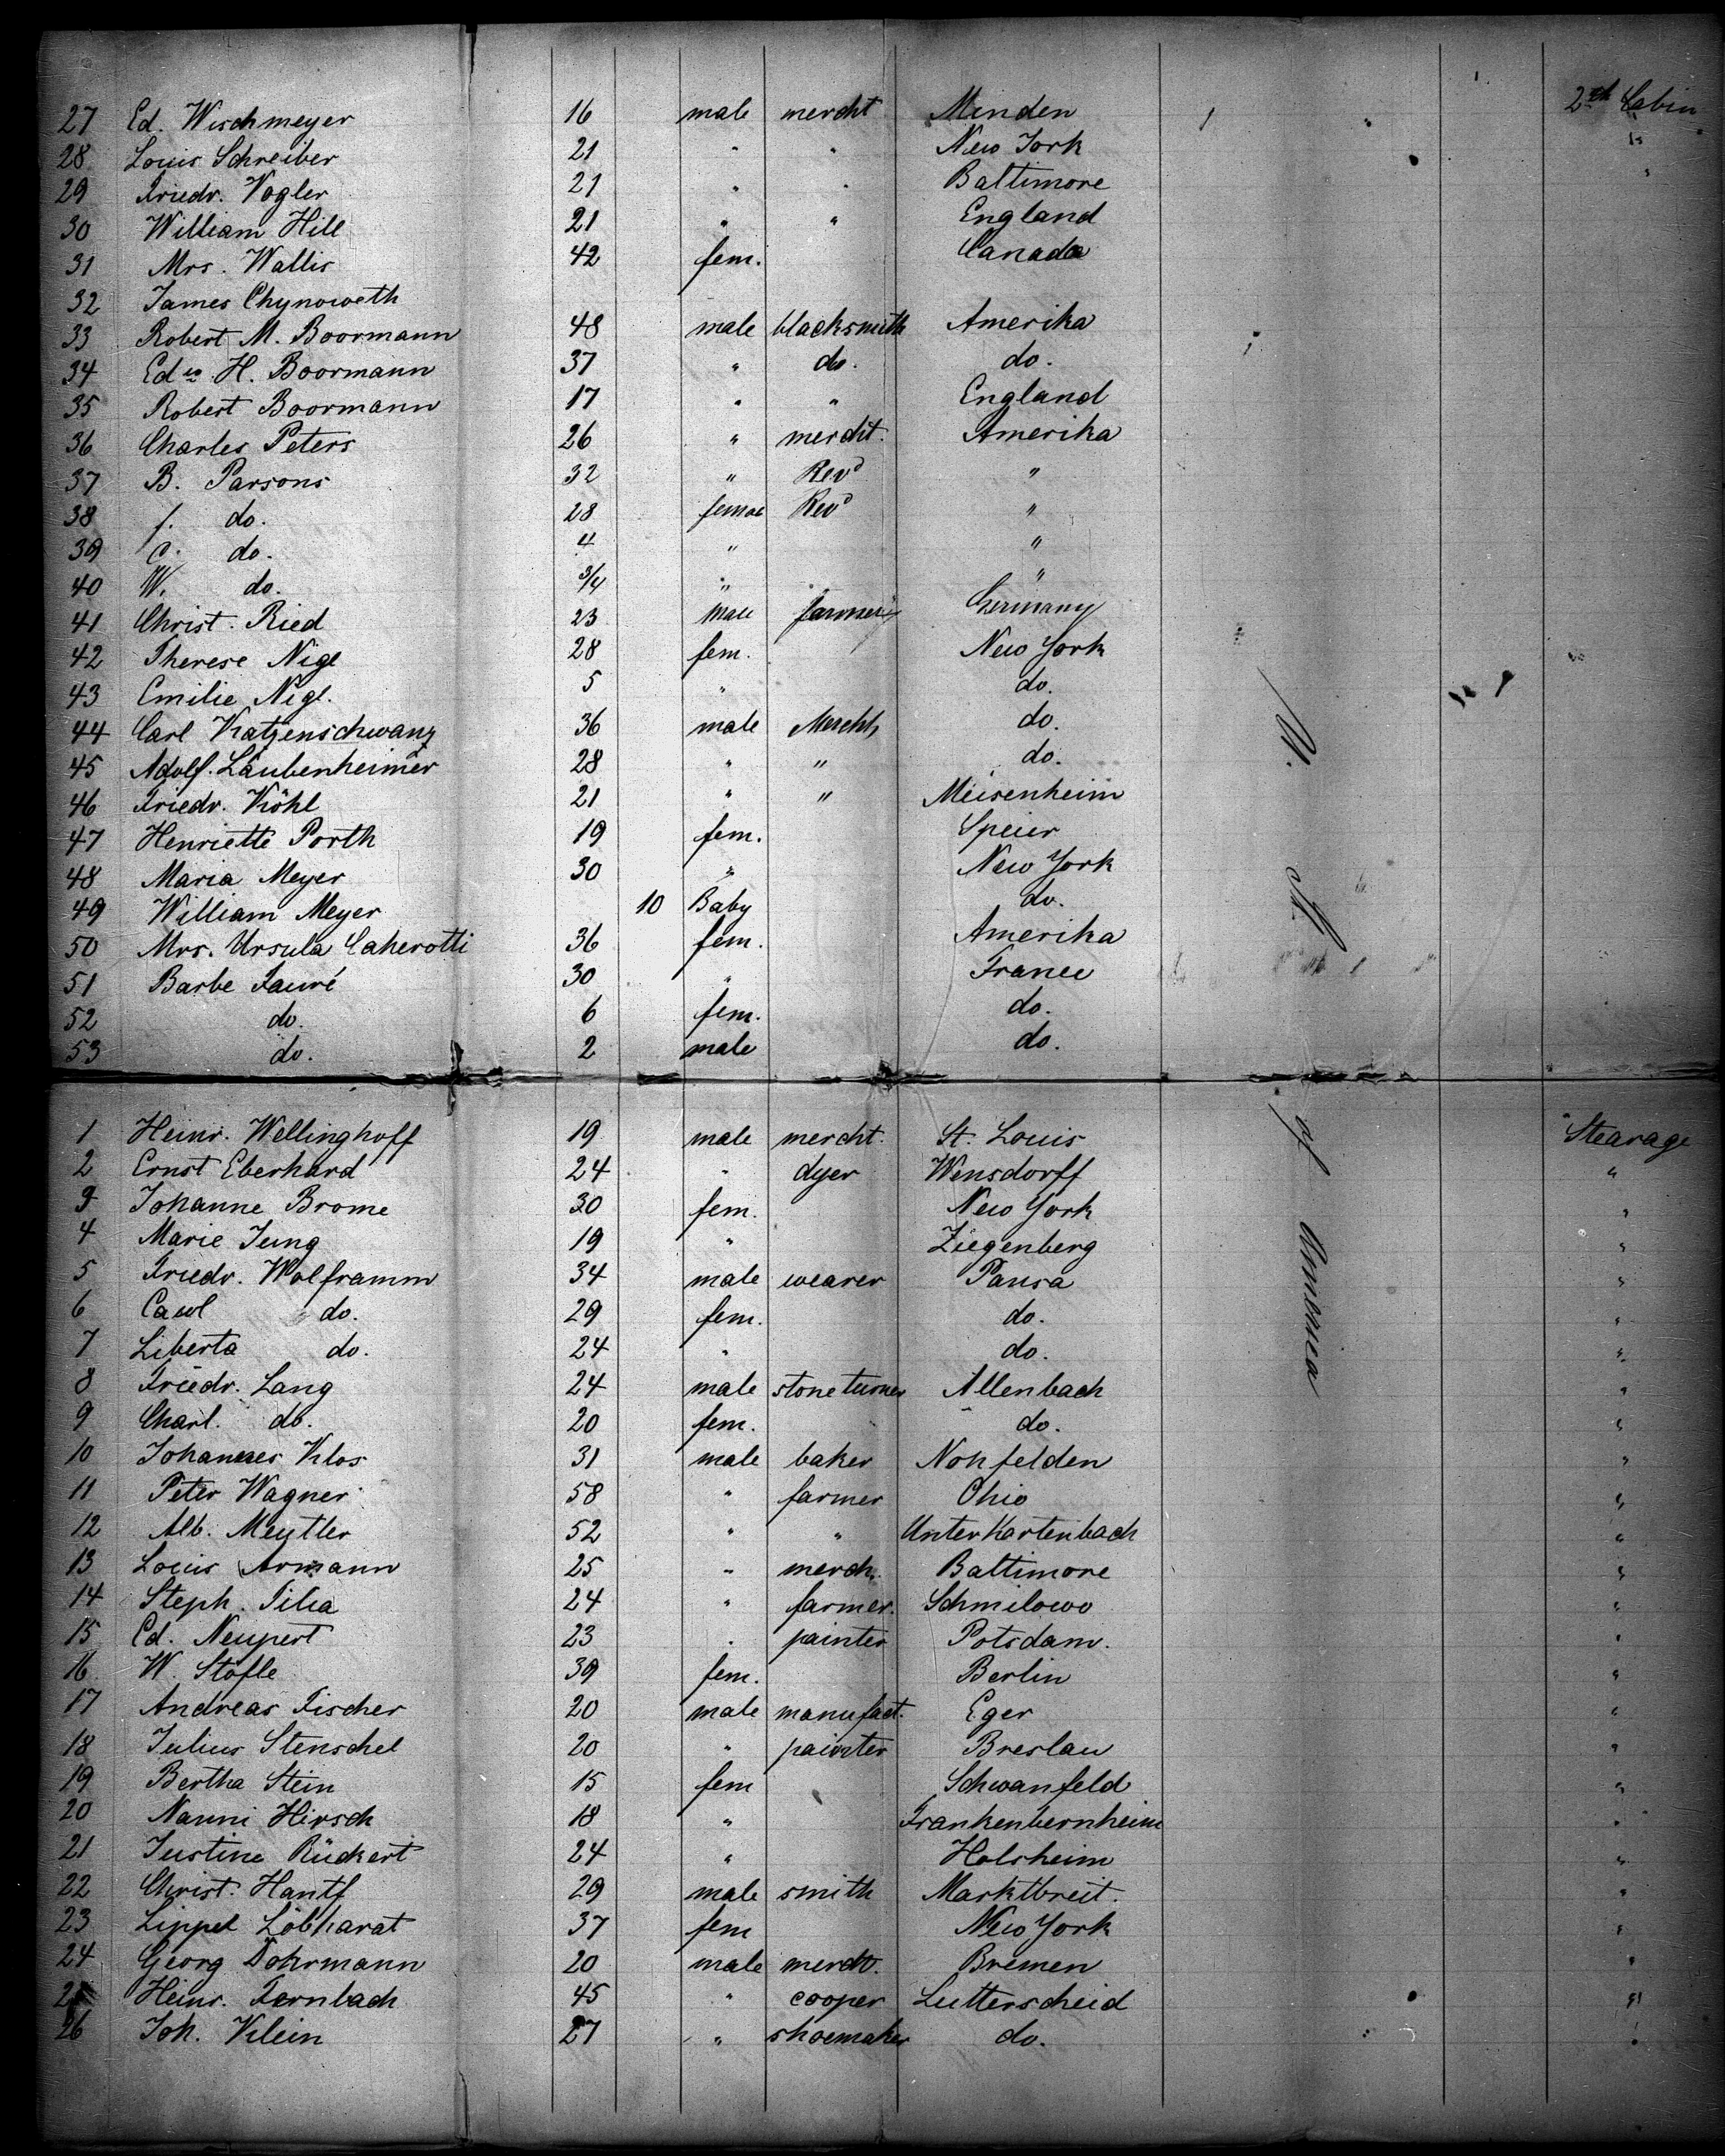 27 Ed. Wischmeyer 16 male mercht Minden 2nd Cabin
28 Louis Schreiber 21 " " New York "
29 Friedr. Vogler 21 " " Baltimore "
30 William Hill 21 " " England
31 Mrs. Wallis 42 fem. Canada
32 James Chynoweth
33 Robert M. Boormann 48 male blacksmith Amerika
34 Edw. H. Boormann 37 " do. do.
35 Robert Boormann 17 " " England
36 Charles Peters 26 " mercht. Amerika
37 B. Parsons 32 " Revd "
38 f. do. 28 femae Revd "
39 C. do. 4 " "
40 W. do. 3/4 " "
41 Christ. Ried 23 Male farmer Germany
42 Therese Nigl 28 fem. New York
43 Emilie Nigl. 5 " do.
44 Carl Katzenschwanz 36 male Mercht, do.
45 Adolf. Laubenheimer 28 " " do.
46 Friedr. Köhl 21 " " Meisenheim
47 Henriette Porth 19 fem. Speier
48 Maria Meyer 30 " New York
49 William Meyer 10 Baby do.
50 Mrs. Ursula Caherotti 36 fem. Amerika
51 Barbe Fauré 30 " France
52 do. 6 fem. do.
53 do. 2 male do.
U. St. of America
1 Heinr. Wellinghoff 19 male mercht. St. Louis Stearage
2 Ernst Eberhard 24 " dyer Wensdorff "
3 Johanne Brome 30 fem. New York "
4 Marie Jung 19 " Ziegenberg "
5 Friedr. Wolframm 34 male wearer Pausa "
6 Cawl do. 29 fem. do. "
7 Liberta do. 24 " do. "
8 Friedr. Lang 24 male stoneturner Allenbach "
9 Charl. do. 20 fem. do. "
10 Johannes Klos 31 male baker Nohfelden "
11 Peter Wagner 58 " farmer Ohio "
12 Alb. Meytler 52 " " Unterhartenbach "
13 Louis Armann 25 " merch. Baltimore "
14 Steph. Tilia 24 " farmer. Schmilowo "
15 Ed. Neupert 23 " painter Potsdam. "
16 W. Stofle 39 fem. Berlin "
17 Andreas Fischer 20 male manufact. Eger "
18 Julius Stenschel 20 " painter Breslau "
19 Bertha Stein 15 fem Schwanfeld "
20 Nanni Hirsch 18 " Frankenbernheim "
21 Justine Rückert 24 " Holsheim "
22 Christ. Hantf 29 male smith Marktbreit. "
23 Lippel Löbharat 37 fem New York "
24 Georg Dohrmann 20 male mercht. Bremen "
25 Heinr. Fernbach 45 " cooper Lutterscheid "
26 Joh. Klein 27 " shoemaker do. "